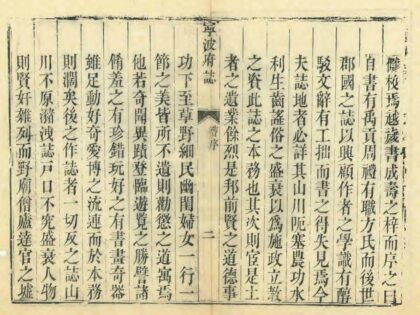 讎校焉越歲書成壽之梓而序之曰
自書有禹貢周禮有職方氏而後世
郡國之誌以興顧作者之學識有醇
駁文辭有工拙而書之得失見焉今
夫誌地者必詳其山川阨塞農功水
利生齒謠俗之盛衰以爲施政立教
之資此誌之本務也其次則宦是土
者之遺業餘烈是邦前賢之道德事
寧波府誌
舊序
二
功下至草野細民幽閨婦女一行一
節之美皆所不遺則勸懲之道寓焉
他若奇聞異蹟登臨遊覽之勝譬諸
脩羞之有珍錯玩好之有書畫奇器
雖足動好奇愛博之流連而於本務
則濶矣後之作誌者一切反之誌山
川不原瀦洩誌戶口不究盛衰人物
則賢奸雜列而野廟僧廬達官之墟